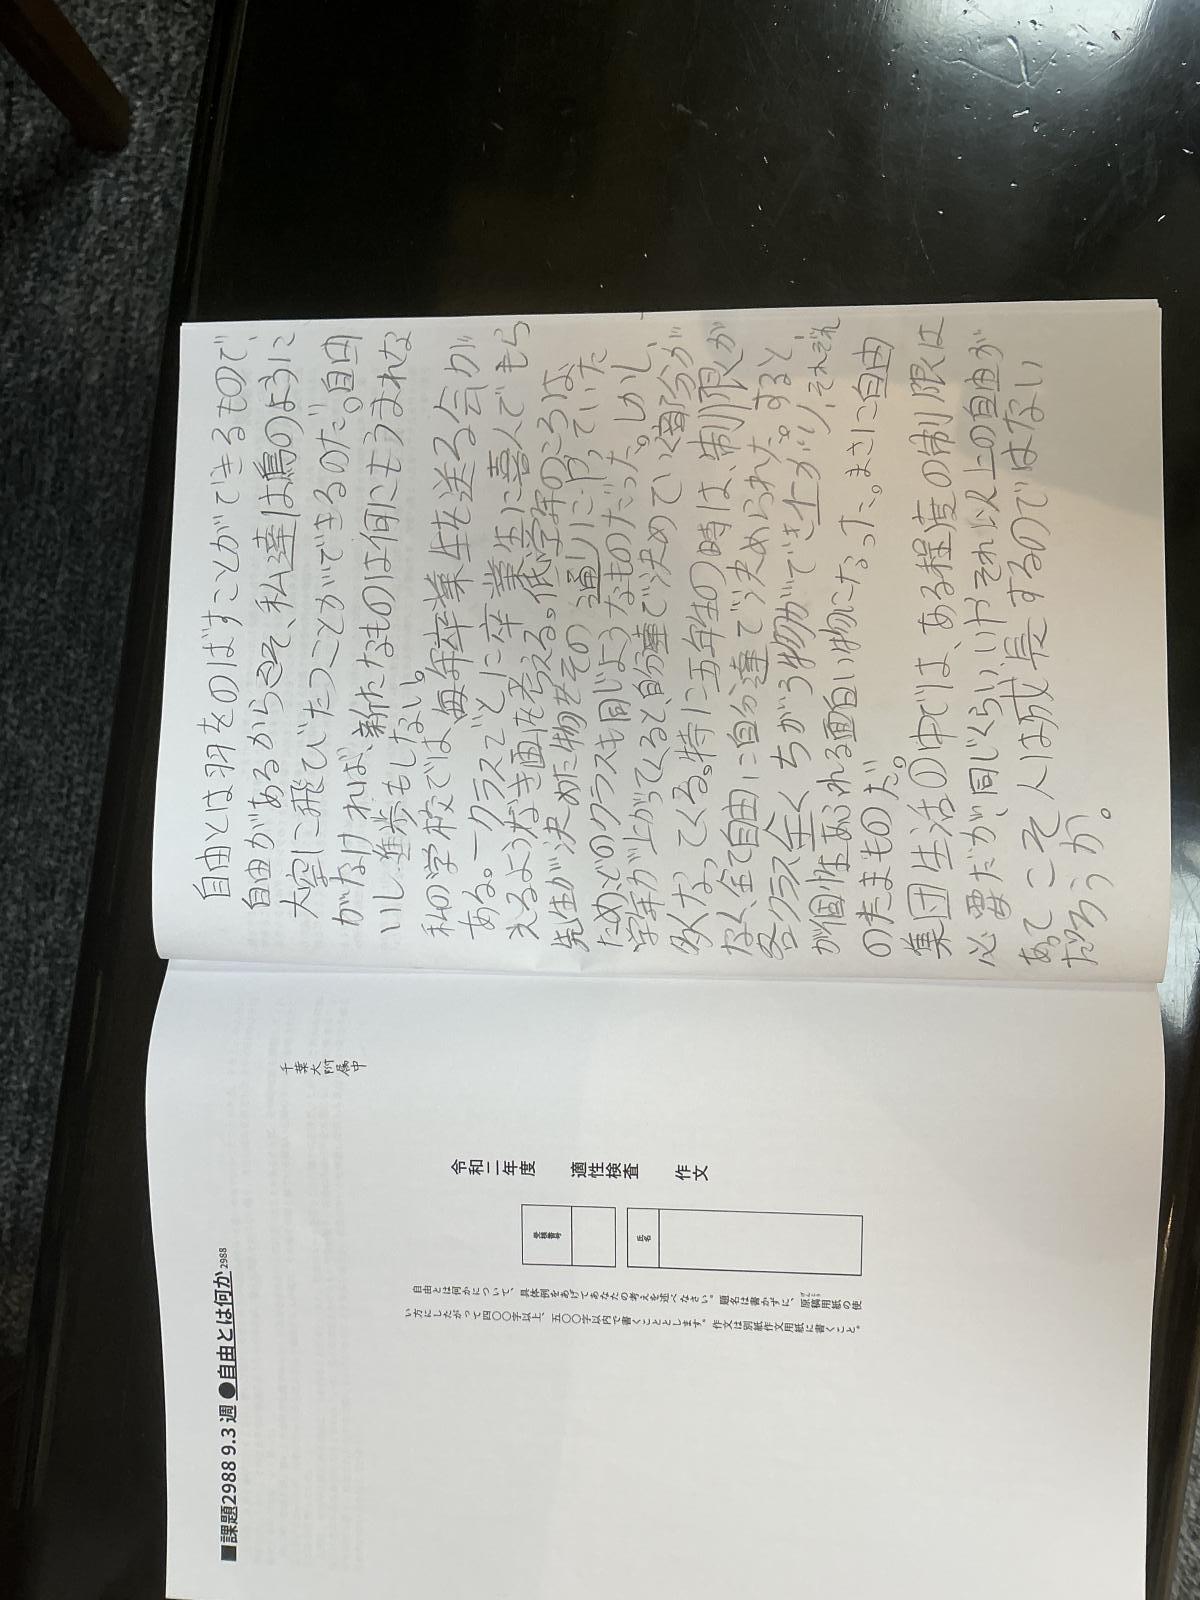 ■課題2988 9.3 週 ●自由とは何か2988
千葉大附属中
令和二年度
適性検査
作文
受検番号
氏名
自由とは何かについて、具体例をあげてあなたの考えを述べなさい。題名は書かずに、原稿用紙の使
い方にしたがって四〇〇字以上、五〇〇字以内で書くこととします。作文は別紙作文用紙に書くこと。
自由とは羽をのばすことができるもので、
自由があるからこそ、私達は鳥のように
大空に飛びたつことができるのだ。自由
がなければ、新たなものは何にもうまれな
いし進歩もしない。
私の学校では、毎年卒業生を送る会が
ある。一クラスごとに卒業生に喜んでもら
えるようなき画を考える。低学年のころは、
先生が決めた物をその通りに行っていた
ため、どのクラスも同じようなものだった。しかし、
学年が上がってくると、自分達で決めていく部分が
多くなってくる。特に五年生の時は、制限が
なく、全て自由に自分達で決められた。すると、
各クラス全くちがう物ができ上がり、それぞれ
が個性あふれる面白い物になった。まさに自由
のたまものだ。
集団生活の中では、ある程度の制限は
必要だが、同じくらい、いやそれ以上の自由が
あってこそ人は成長するのではない
だろうか。